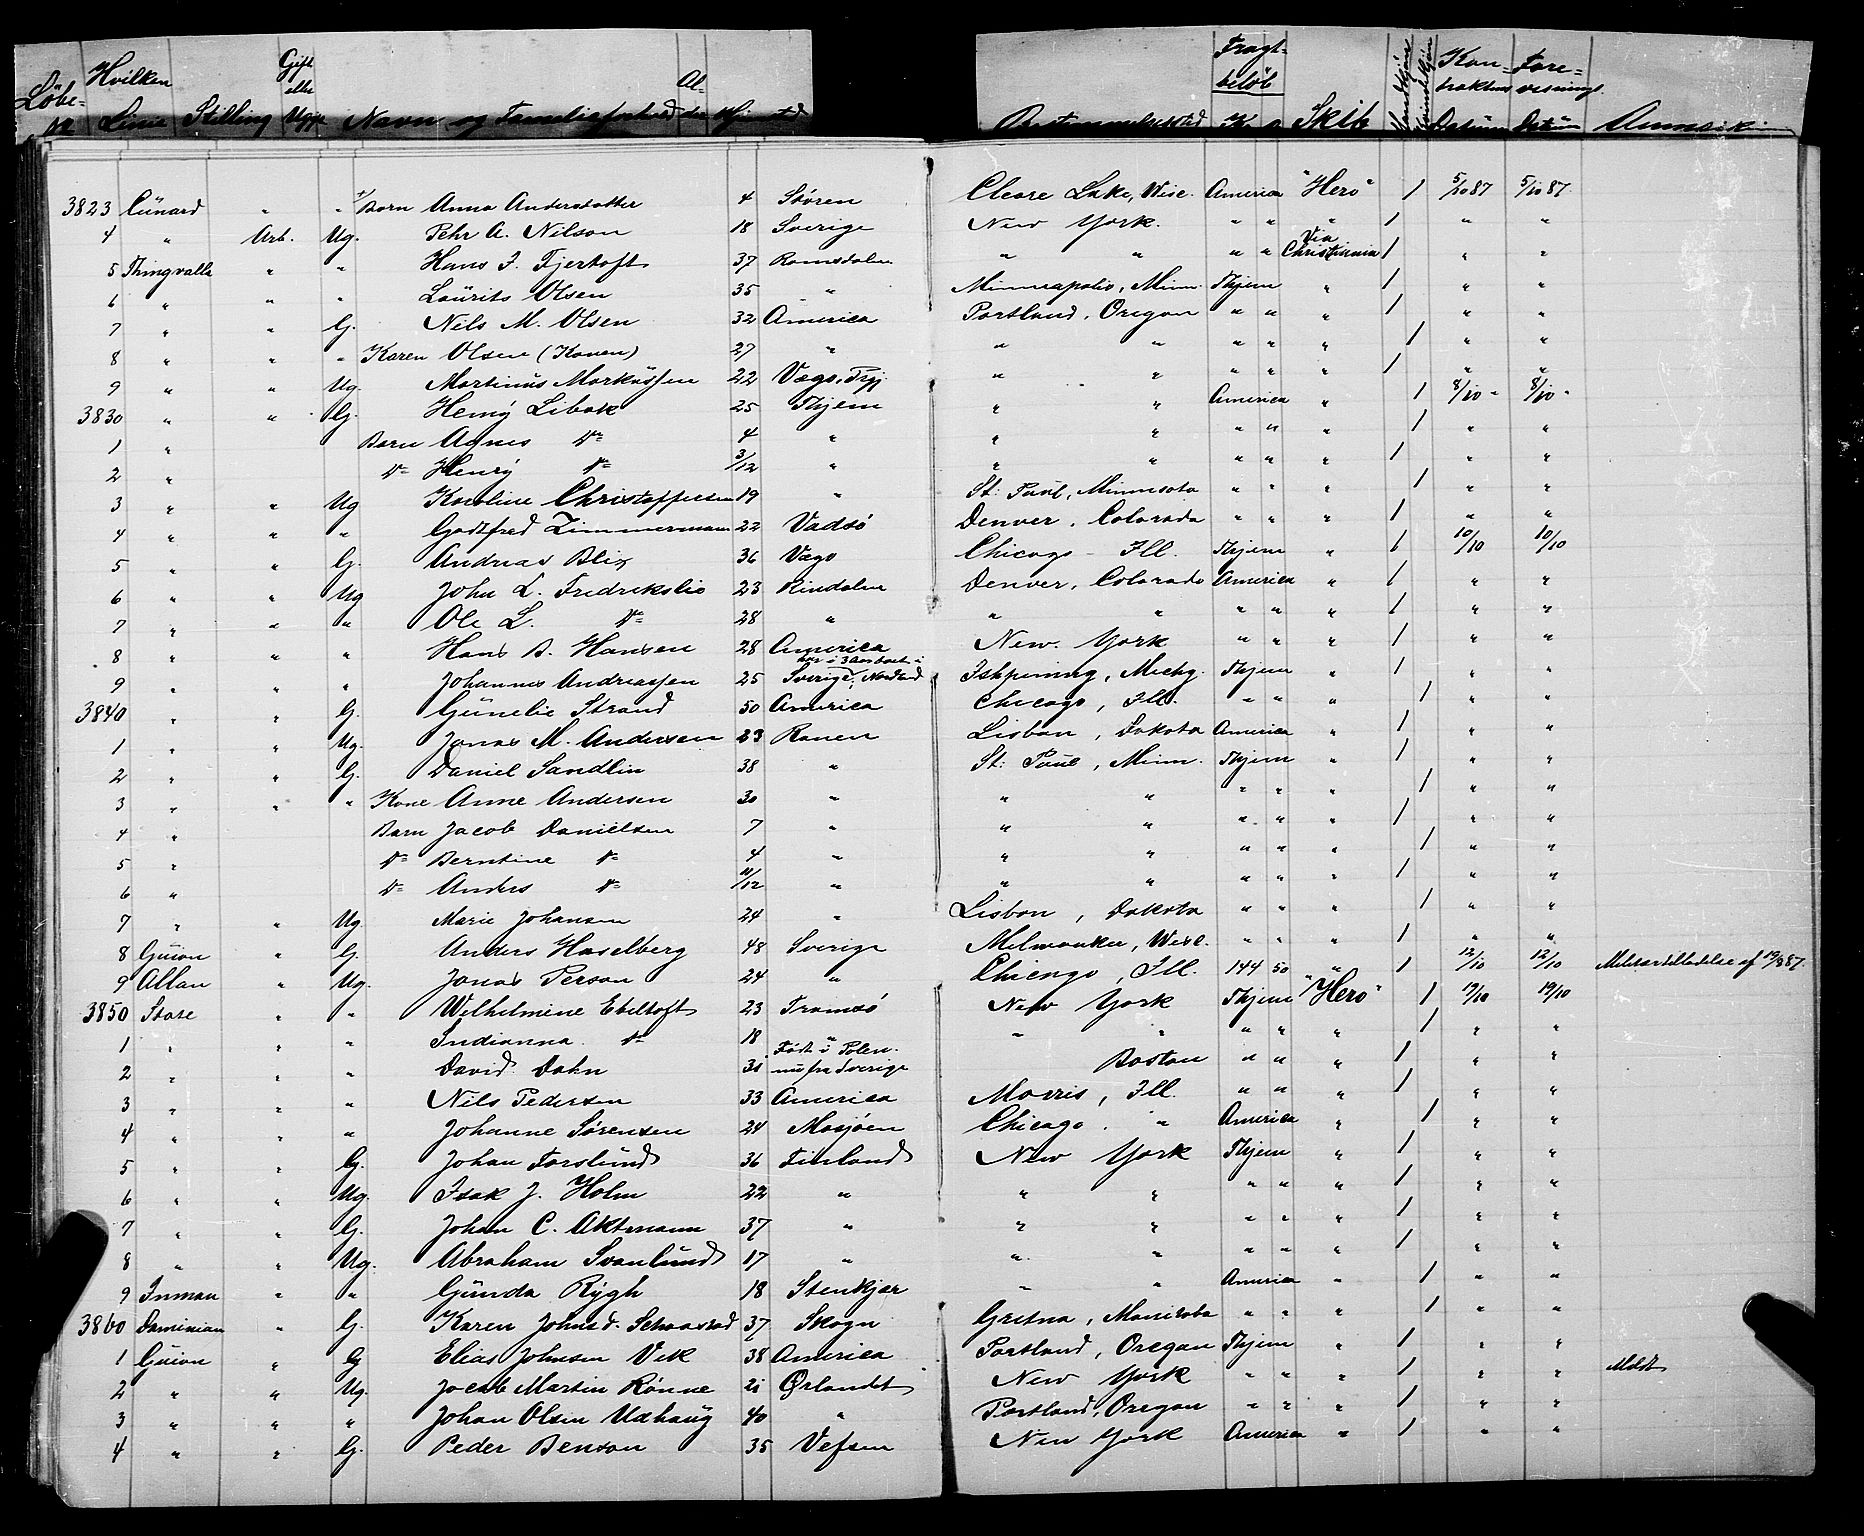 Löbe- Hvilken Gift Al- Fragt- Mandkjön Kvindekjön Kon- Fore-
No Linie Stilling eller Ugift Navn og Familieforhold der Hjemsted Bestemmelsessted beløb Kr Ø Skib traktens Datum visnings Datum Anmærk.
3823 Cunard " " Barn Anna Andersdatter 4 Støren Cleare Lake, Wisc. America "Hero" 1 5/10 87 5/10 87.
4 " Arb. Ug. Pehr A. Nilson 18 Sverige New York. " " " 1 " "
5 Thingvalla " " Hans J. Fjertoft 37 Romsdalen " " " " Via Christiania 1 " "
6 " " " Laurits Olsen 35 " Minneapolis, Minn. Thjem " 1 " "
7 " " G. Nils M. Olsen 32 America Portland, Oregon " " " 1 " "
8 " " " Karen Olsen (Konen) 27 " " " " " " 1 " "
9 " " Ug. Martinus Markussen 22 Vægs. Frj. " " " " " 1 " "
3830 " " G. Henry Libak 25 Thjem " " America " 1 8/10 " 8/10 "
1 " Barn Agnes Do 4 " " " " " " 1 " "
2 " Do Henry Do 3/12 " " " " " " 1 " "
3 " " Ug Karoline Christophersen 19 " St: Paul, Minnesota " " " 1 " "
4 " " " Godtfred Zimmermann 22 Vadsö Denver, Colorado " " " 1 " "
5 " " G. Andreas Blix 36 Vægs Chicago - Ill. Thjem " 1 10/10 10/10
6 " " Ug John L. Fredrikslie 23 Rindalen Denver, Colorado America " 1 " "
7 " " " Ole L. Do 28 " " " " " " 1 " "
8 " " " Hans B. Hansen 28 America New York " " " 1 " "
9 " " " Johannes Andreassen 25 Sverige, Nordland Ishpeming, Michg. Thjem " 1 " "
3840 " " G. Gunelie Strand 50 America Chicago, Ill. " " " 1 " "
1 " " Ug. Jonas M. Andersen 23 Ranen Lisbon, Dakota America " 1 " "
2 " " G. Daniel Sandlin 38 " St: Paul, Minn. Thjem " 1 " "
3 " " " Kone Anne Andersen 30 " " " " " " 1 " "
4 " Barn Jacob Danielsen 7 " " " " " " 1 " "
5 " Do Berntine Do 4 " " " " " " 1 " "
6 " Do Anders Do 11/12 " " " " " " 1 " "
7 " " Ug. Marie Johansen 24 " Lisbon, Dakota " " " 1 " "
8 Guion " G. Anders Haselberg 48 Sverige Milwaukee, Wisc. " " " 1 " "
9 Allan " Ug. Jonas Person 24 " Chicago, Ill. 144 50 " 1 12/10 12/10
3850 State " " Wilhelmine Ebeltoft 23 Tromsö New York Thjem "Hero" 1 19/10 19/10
1 " " " Indianna Do 18 " " " " " " 1 " "
2 " " " David Dahn 31 Født i Polen. nu fra Sverige Boston " " " 1 " "
3 " " " Nils Pedersen 33 America Morris, Ill. " " " 1 " "
4 " " " Johanne Sørensen 24 Mosjöen Chicago. " America " 1 " "
5 " " G. Johan Forslund 36 Finland New York Thjem " 1 " "
6 " " Ug. Isak J. Holm 22 " " " " " " 1 " "
7 " " G. Johan C. Aktmann 37 " " " " " " 1 " "
8 " " Ug. Abraham Svanlund 17 " " " " " " 1 " "
9 Inman " " Gunda Rygh 18 Stenkjer " " America " 1 " "
3860 Dominian " G. Karen Johnsd. 37 Skogn Gretna, Manitoba " " " 1 " "
1 Guion " G Elias Johnsen Vik 38 America Portland, Oregon Thjem " 1 " "
2 " " Ug. Jacob Martin Rønne 21 Ørlandet New York " " " 1 " " Meldt
3 " " " Johan Olsen Uxhaug 40 " Portland, Oregon " " " 1 " "
4 " " G. Peder Benson 35 Vefsen New York America " 1 " "